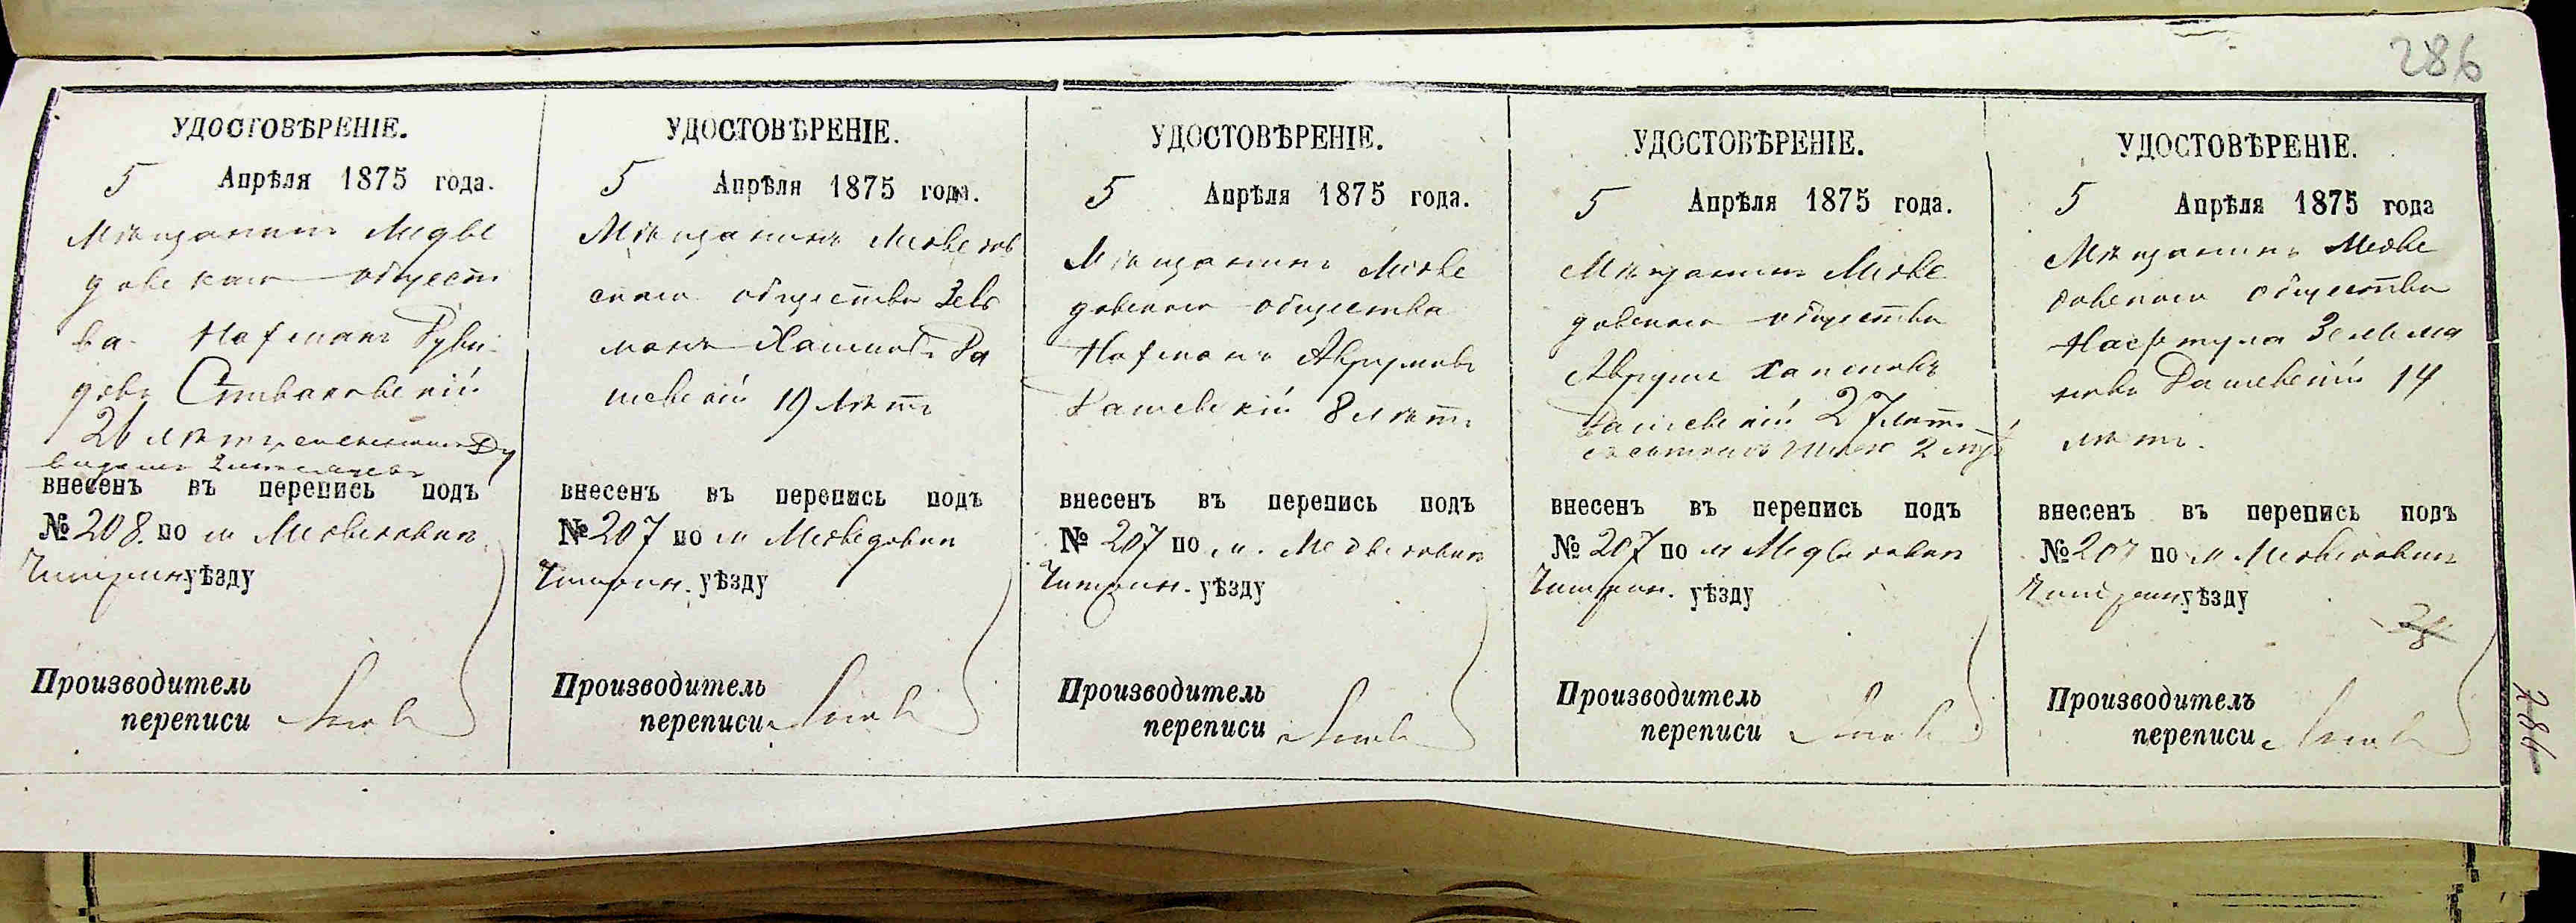 286
УДОСТОВѢРЕНІЕ.
5 Апрѣля 1875 года.
Мѣщанинъ Медве
довскаго общест
ва Нафманъ Руви
новъ
26 лѣтъ
внесенъ въ перепись подъ
№ 208. по м Медведовки
Чигирин уѣзду
Производитель
переписи
УДОСТОВѢРЕНІЕ.
5 Апрѣля 1875 года.
Мѣщанинъ Медведов
скаго общества Зель
манъ Хаимовъ Ра
шевскій 19 лѣтъ
внесенъ въ перепись подъ
№ 207 по м Медведовки
Чигирин. уѣзду
Производитель
переписи
УДОСТОВѢРЕНІЕ.
5 Апрѣля 1875 года.
Мѣщанинъ Медве
довскаго общества
Нафманъ Аврумовъ
Рашевскій 8 лѣтъ
внесенъ въ перепись подъ
№ 207 по м. Медведовки
Чигирин. уѣзду
Производитель
переписи
УДОСТОВѢРЕНІЕ.
5 Апрѣля 1875 года.
Мѣщанинъ Медве
довскаго общества
Аврумъ Хаимовъ
Рашевскій 27 лѣтъ
внесенъ въ перепись подъ
№ 207 по м Медведовки
Чигирин. уѣзду
Производитель
переписи
УДОСТОВѢРЕНІЕ.
5 Апрѣля 1875 года
Мѣщанинъ Медве
довскаго общества
Зельма
новъ Рашевскій 14
лѣтъ.
внесенъ въ перепись подъ
№ 207 по м Медведовки
Чигирин уѣзду
Производитель
переписи
286